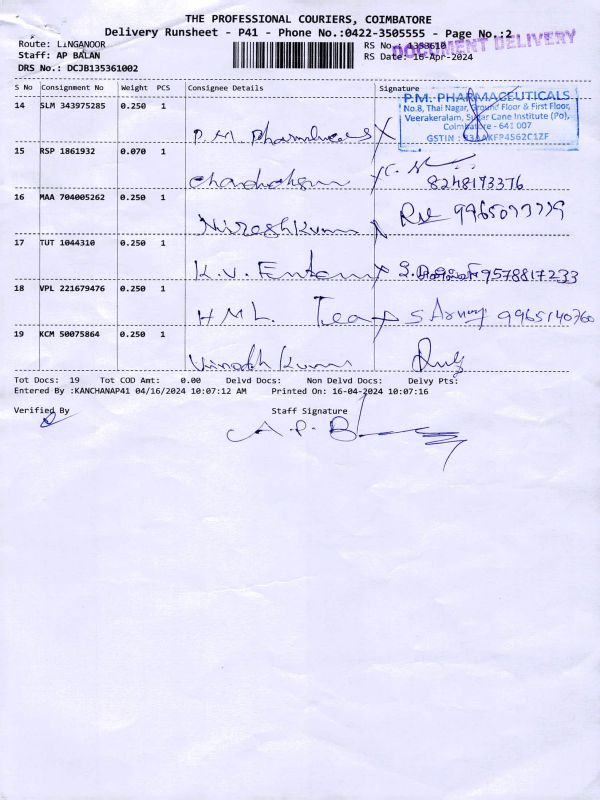 THE PROFESSIONAL COURIERS, COIMBATORE
Delivery Runsheet - P41 - Phone No.:0422-3505555 - Page No.:2
Route: LINGANOOR
Staff: AP BALAN
DRS No.: DCJB135361002
RS No.: 1353610
RS Date: 16-Apr-2024
DOCUMENT DELIVERY
S No Consignment No Weight PCS Consignee Details Signature
14 SLM 343975285 0.250 1
P.M. PHARMACEUTICALS
No.8, Thai Nagar, Ground Floor & First Floor,
Veerakeralam, Sugar Cane Institute (Po),
Coimbatore - 641 007
GSTIN :
P.M
15 RSP 1861932 0.070 1
8248193376
16 MAA 704005262 0.250 1
Nireshkumar
17 TUT 1044310 0.250 1
K.V. 9578817233
18 VPL 221679476 0.250 1
H.M.L. Tea 9965140760
19 KCM 50075864 0.250 1
Vinoth Kumar
Tot Docs: 19 Tot COD Amt: 0.00 Delvd Docs: Non Delvd Docs: Delvy Pts:
Entered By :KANCHANAP41 04/16/2024 10:07:12 AM Printed On: 16-04-2024 10:07:16
Verified By Staff Signature
A.P. B